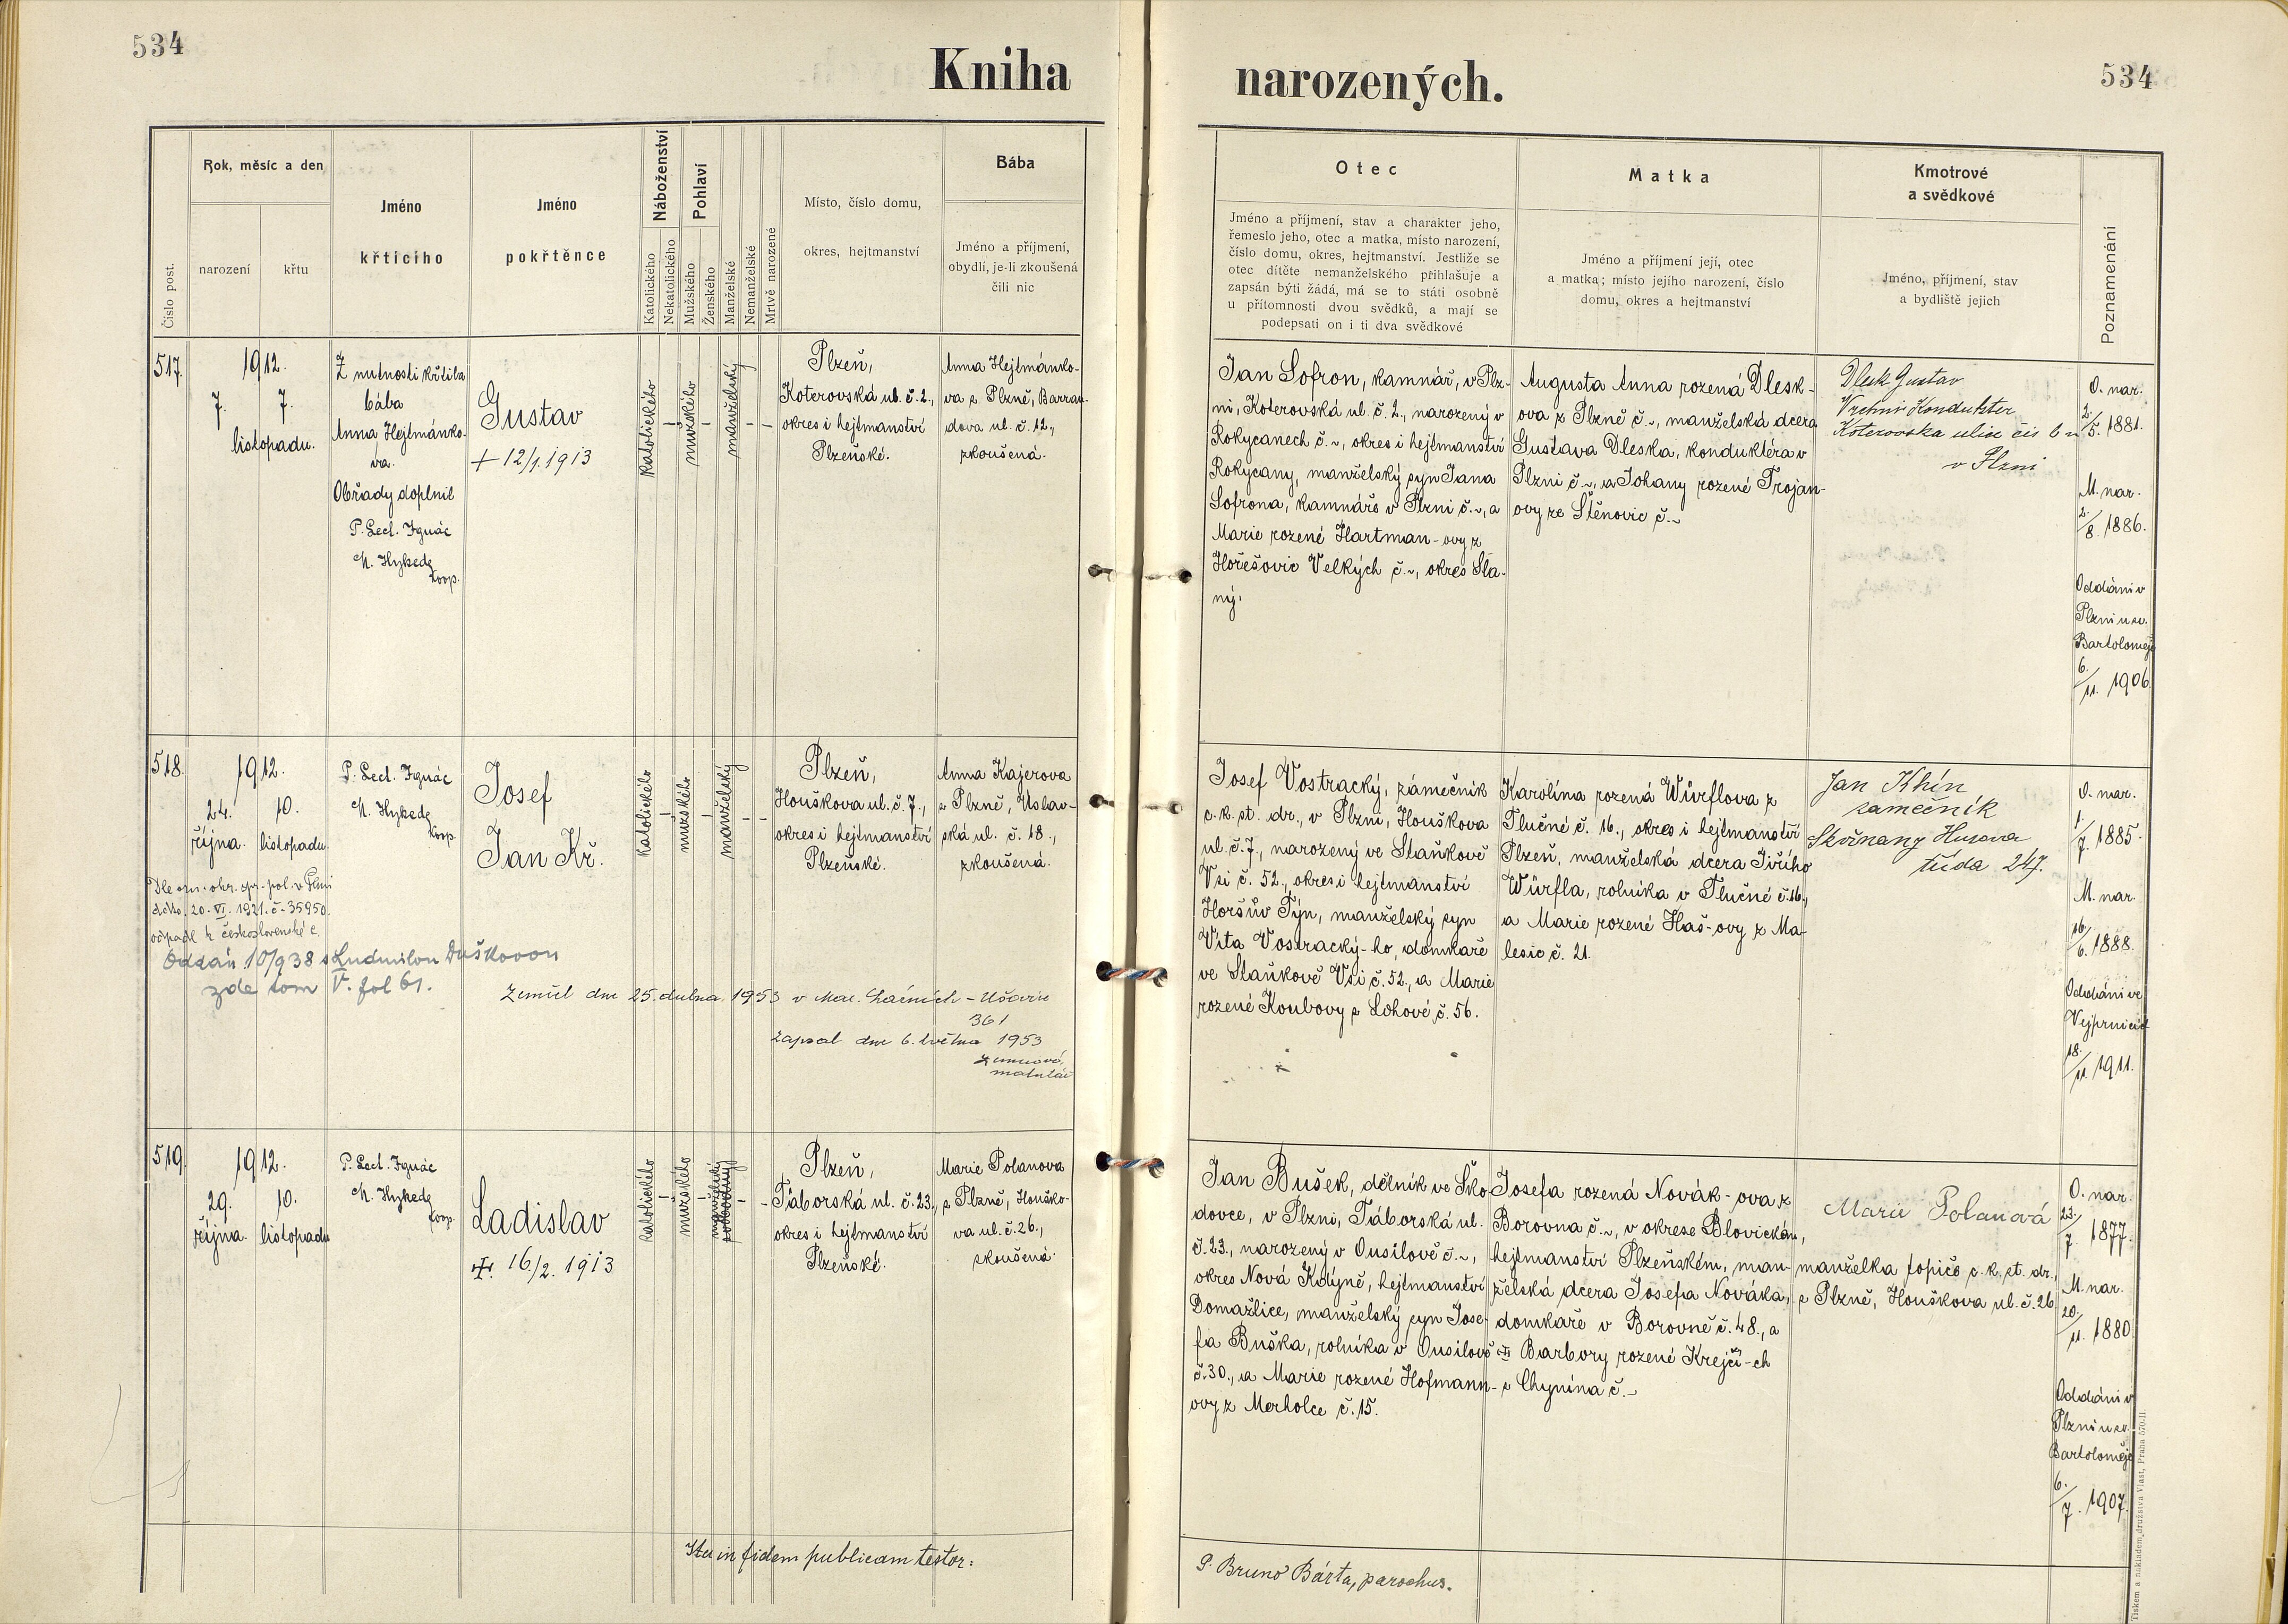 534
Kniha
narozených.
534
Číslo post.
Rok, měsíc a den
narození
křtu
Jméno
křticího
Jméno
pokřtěnce
Náboženství
Katolického
Nekatolického
Pohlaví
Mužského
Ženského
Manželské
Nemanželské
Mrtvě narozené
Místo, číslo domu,
okres, hejtmanství
Bába
Jméno a příjmení,
obydlí, je-li zkoušená
čili nic
Otec
Jméno a příjmení, stav a charakter jeho,
řemeslo jeho, otec a matka, místo narození,
číslo domu, okres, hejtmanství. Jestliže se
otec dítěte nemanželského přihlašuje a
zapsán býti žádá, má se to státi osobně
u přítomnosti dvou svědků, a mají se
podepsati on i ti dva svědkové
Matka
Jméno a příjmení její, otec
a matka; místo jejího narození, číslo
domu, okres a hejtmanství
Kmotrové
a svědkové
Jméno, příjmení, stav
a bydliště jejich
Poznamenání
517.
1912.
7. 7.
listopadu.
Z nutnosti křtila
bába
Anna Hejtmánko-
va.
Obřady doplnil
P. Lect. Ignác
M. Hykede
Koop.
Gustav
+ 12/1. 1913
katolického
mužského
manželský
Plzeň,
Koterovská ul. č. 2.,
okres i hejtmanství
Plzeňské.
Anna Hejtmánko-
va z Plzně, Barran-
dova ul. č. 12.,
zkoušená.
Jan Sofron, kamnář, v Plz-
ni, Koterovská ul. č. 2., narozený v
Rokycanech č. ~, okres i hejtmanství
Rokycany, manželský syn Jana
Sofrona, kamnáře v Plzni č. ~, a
Marie rozené Hartman-ovy z
Hořešovic Velkých č. ~, okres Sla-
ný.
Augusta Anna rozená Dlesk-
ova z Plzně č. ~, manželská dcera
Gustava Dleska, konduktéra v
Plzni č. ~, a Johany rozené Trojan-
ovy ze Štěnovic č. ~
Dlesk Gustav
Vrchni Kondukter
Koterovska ulice čis 6
v Plzni
O. nar.
2./5. 1881.
M. nar.
2./8. 1886.
Oddáni v
Plzni u sv.
Bartoloměje
6./11. 1906.
518.
1912.
24. 10.
října. listopadu
P. Lect. Ignác
M. Hykede
Koop.
Josef
Jan Kř.
katolického
mužského
manželský
Plzeň,
Houškova ul. č. 7.,
okres i hejtmanství
Plzeňské.
Anna Kajerova
z Plzně, Úslav-
ská ul. č. 18.,
zkoušená.
Dle ozn. okr. spr. pol. v Plzni
ddto. 20. VI. 1921. č. 35950.
odpadl k československé c.
Oddán 10/9 38 s Ludmilou Duškovou
zde tom V. fol 61.
Zemřel dne 25. dubna 1953 v Mar. Lázních - Úšovice
361
Zapsal dne 6. května 1953
matrikář
Josef Vostracký, zámečník
c. k. st. dr., v Plzni, Houškova
ul. č. 7., narozený ve Staňkově
Vsi č. 52., okres i hejtmanství
Horšův Týn, manželský syn
Víta Vostracký-ho, domkáře
ve Staňkově Vsi č. 52., a Marie
rozené Koubovy z Lohové č. 56.
Karolína rozená Würflova z
Tlučné č. 16., okres i hejtmanství
Plzeň, manželská dcera Jiřího
Würfla, rolníka v Tlučné č. 16.,
a Marie rozené Haš-ovy z Ma-
lesic č. 21.
Jan Khín
zamečník
Skvrnany Husova
třída 247.
O. nar.
1./7. 1885.
M. nar.
16./6. 1888.
Oddáni ve
Vejprnicích
18./11. 1911.
519.
1912.
29. 10.
října. listopadu
P. Lect. Ignác
M. Hykede
Koop.
Ladislav
+ 16./2. 1913
katolického
mužského
manželský
Plzeň,
Táborská ul. č. 23.,
okres i hejtmanství
Plzeňské.
Marie Polanova
z Plzně, Houško-
va ul. č. 26.,
zkoušená.
Jan Bušek, dělník ve Ško-
dovce, v Plzni, Táborská ul.
č. 23., narozený v Ousilově č. ~,
okres Nová Kdýně, hejtmanství
Domažlice, manželský syn Jose-
fa Buška, rolníka v Ousilově
č. 30., a Marie rozené Hofmann-
ovy z Merholce č. 15.
Josefa rozená Novák-ova z
Borovna č. ~, v okrese Blovickém,
hejtmanství Plzeňském, man-
želská dcera Josefa Nováka,
domkáře v Borovně č. 48., a
Barbory rozené Krejčí-ch
z Chynína č. ~
Marie Polanová
manželka topiče c. k. st. dr.,
z Plzně, Houškova ul. č. 26.
O. nar.
23./7. 1877.
M. nar.
20./11. 1880.
Oddáni v
Plzni u sv.
Bartoloměje
6./7. 1907.
Ita in fidem publicam testor:
P. Bruno Bárta, parochus.
Tiskem a nakladem družstva Vlast, Praha 570-II.